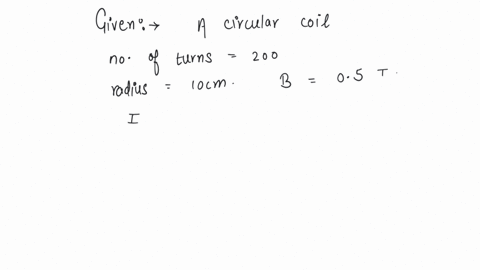 Given:→ A circular coil
no. of turns = 200
radius = 10cm. B = 0.5 T.
I